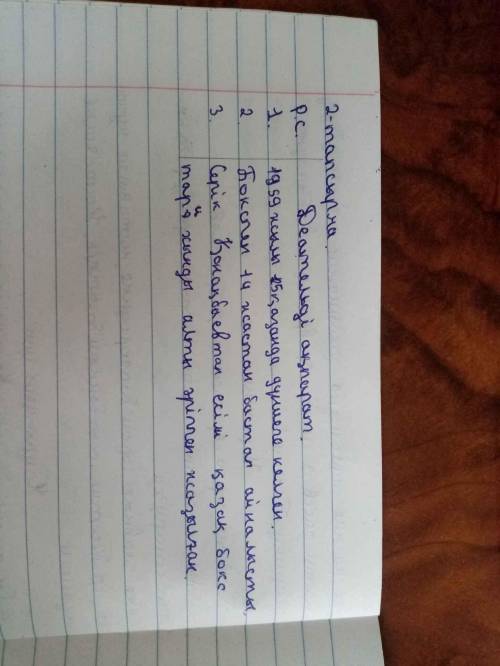 2-тапсырма.
Р.С. Деательді ақпарат.
1. 1959 жылы 25қазанда дүниеге келген.
2. Бокспен 14 жастан бастап айналысты,
3. Серік Қонақбаевтан есімі қазақ бокс
тарй хынды алты әріппен жазылған.